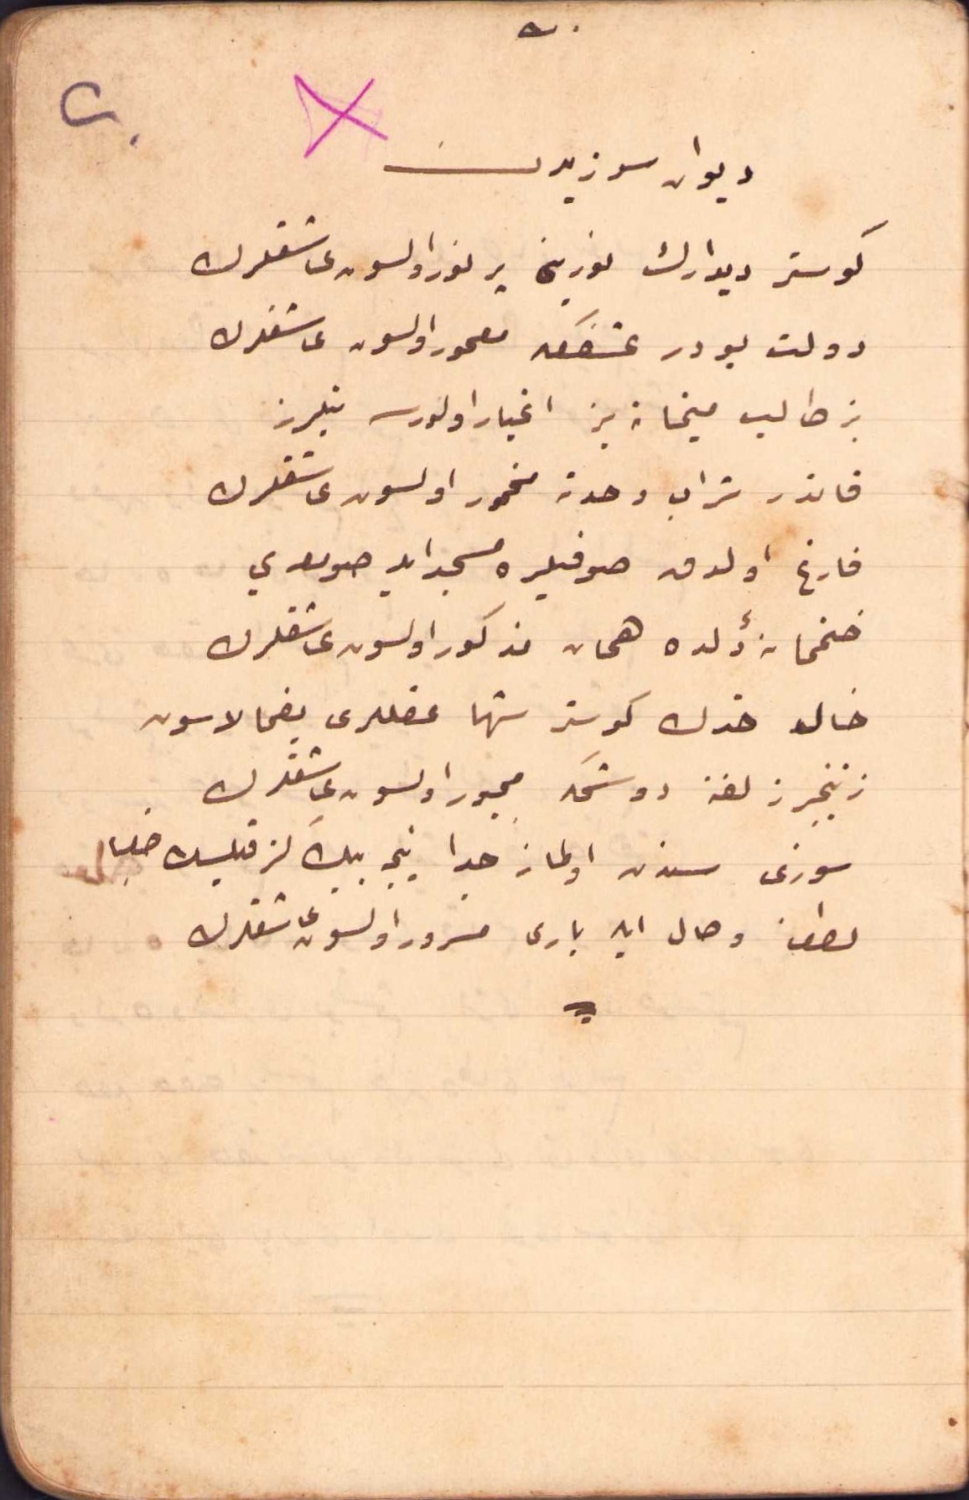 ديوان سوزيدن
كوستر ديدارك نورينى پر نور اولسون عاشقلرك
دولت بودر عشقكله معمور اولسون عاشقلرك
بز طالب ميخانه يز اغيار اولورسه نيلرز
قاندر شراب وحدته مخمور اولسون عاشقلرك
فارغ اولدق صوفيلره مسجد ايله صومعه يى
خمخانهٔ دلده همان مذكور اولسون عاشقلرك
خال خدك كوستر شها عقللرى يغمالاسون
زنجير زلفه دوشكه مجبور اولسون عاشقلرك
سوزى سندن اولماز جدا نيجه بيك كز قيليسك
لطف وصال ايله بارى مسرور اولسون عاشقلرك